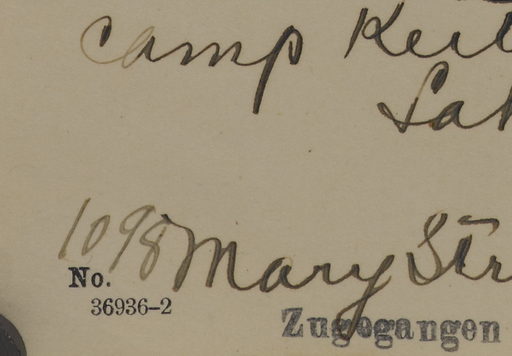 Camp Keit
Lak
1098 Mary Str
No.
36936-2
Zugegangen